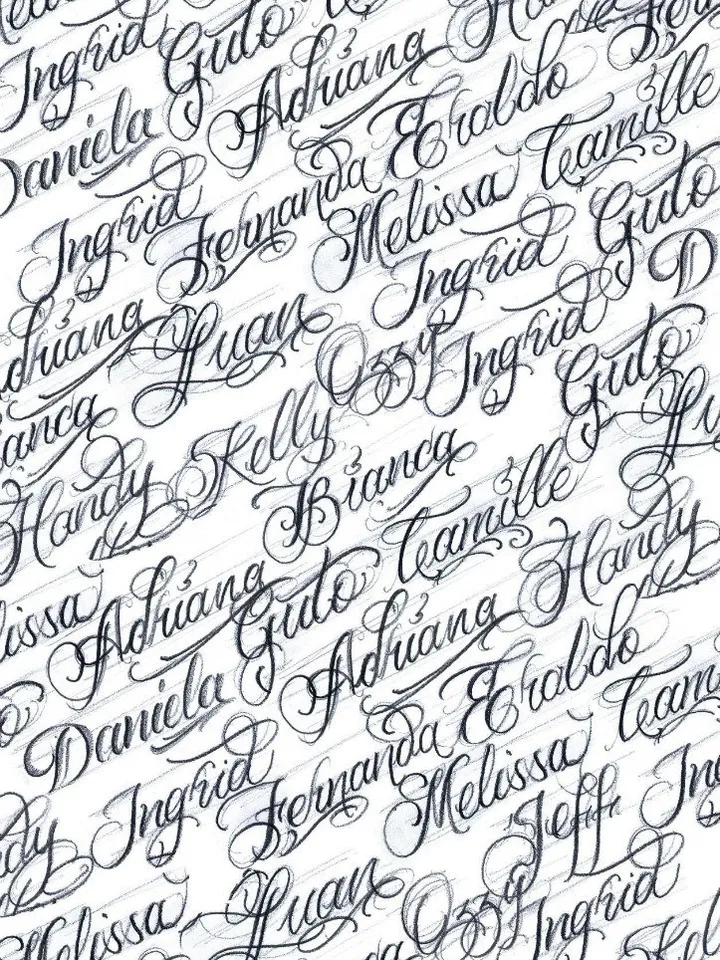 Ingrid Guto
Daniela Adriana
Ingrid Fernanda Eraldo
Melissa Camille
driana Ingrid Guto
Ozzy Ingrid D
ianca Kelly Guto
Handy Bianca
issa Adriana Camille
Guto Handy
Daniela Adriana
Ingrid Fernanda Eraldo
dy Melissa Cam
Jeff In
Melissa Ozzy Ingrid